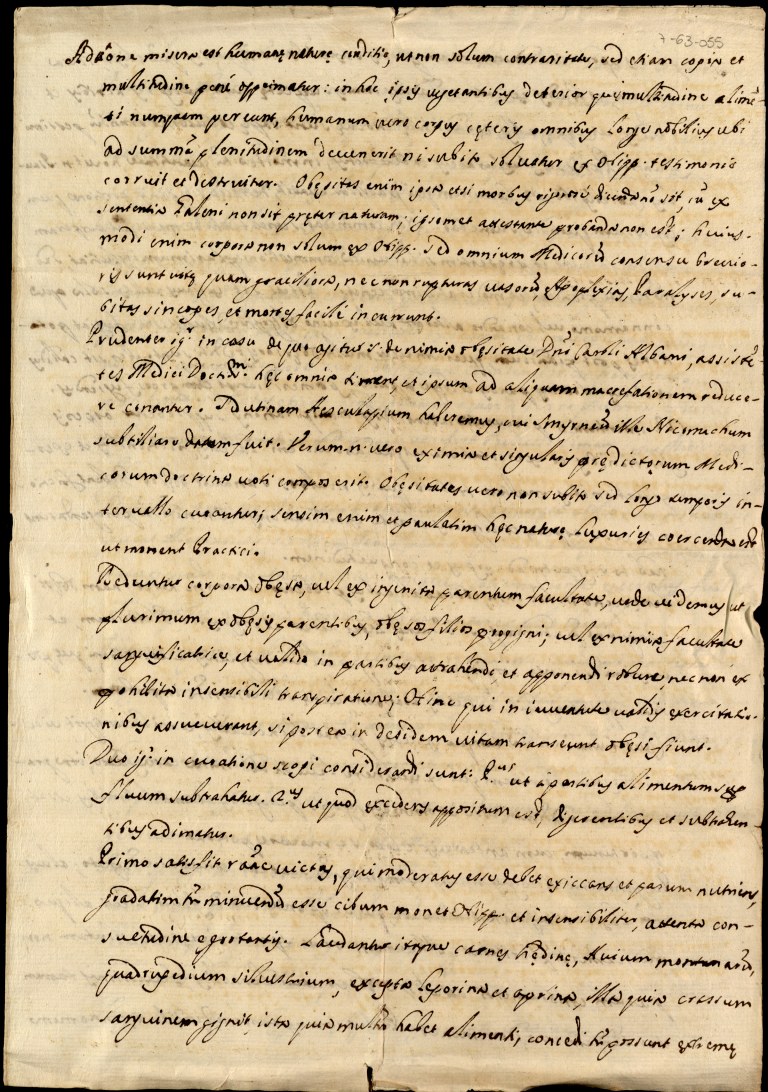 7-63-055
Adeo misera est humanę naturę conditio, ut non solum contrarietate, sed etiam copia et
multitudine penè opprimatur: in hoc ipsis vegetantibus deterior quę multitudine alimē-
ti numquam pereunt, humanum vero corpus cęteris omnibus longe nobilius ubi
ad summā plenitudinem devenerit ni subito solvatur ex Hipp. testimonio
corruit et destruitur. Obęsitas enim ipsa etsi morbus rigorose dicenda nō sit, cū ex
sententia Galeni non sit pręter naturam; ipsomet attestante probanda non est; huius-
modi enim corpora non solum ex Hipp. sed omnium Medicorū consensu brevio-
ris sunt vitę quam graciliora, nec non rupturas vasorū, Apoplexias, Paralyses, su-
bitas sincopes, et mortes facilè incurrunt.
Prudenter igr. in casu de quo agitur s. de nimia obęsitate Dñi Caroli Albani, assistē-
tes Medici Doctmi. hęc omnia timent, et ipsum ad aliquam macrefationem reduce-
re conantur. Sed utinam Aesculapium haberemus, cui Smyrneū illū Nicomachum
subtiliare datum fuit. Verum.n. vero eximia et singularis prędictorum Medi-
corum doctrina voti compos erit. Obęsitates vero non subito sed longo temporis in-
tervallo curantur; sensim enim et paulatim hęc naturę luxuries coercenda est
ut monent Practici.
Redduntur corpora obęsa, vel ex ingenita parentum facultate, unde videmus ut
plurimum ex obęsis parentibus, obęsos filios progigni; vel ex nimia facultate
sanguificatrice, et valido in partibus attrahendi et apponendi robore, nec non ex
prohibita insensibili transpiratione; Hinc qui in iuventute validis exercitatio-
nibus assueverant, si postea in desidem vitam transeunt obęsi fiunt.
Duo igr. in curatione scopi considerandi sunt: Pus ut a partibus alimentum sup
fluum subtrahatur. 2us ut quod excedens appositum est, digerentibus et subtrahen-
tibus adimatur.
Primo satisfit rāōe victus, qui moderatus esse debet exiccans et parum nutriens,
gradatim tn̄ minuendū esse cibum monet Hipp. et insensibiliter, attenta con-
suetudine egrotantis. Laudantur itaque carnes hędinę, Avium montanarū,
quadrupedium silvestrium, excepta leporina et aprina, illa quia crassum
sanguinem gignit, ista quia multū habet alimenti, concedi tn̄ possunt extremę